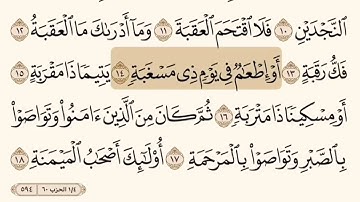 ٱلنَّجْدَيْنِ ١٠ فَلَا ٱقْتَحَمَ ٱلْعَقَبَةَ ١١ وَمَآ أَدْرَىٰكَ مَا ٱلْعَقَبَةُ ١٢
فَكُّ رَقَبَةٍ ١٣ أَوْ إِطْعَٰمٌ فِى يَوْمٍ ذِى مَسْغَبَةٍ ١٤ يَتِيمًا ذَا مَقْرَبَةٍ ١٥
أَوْ مِسْكِينًا ذَا مَتْرَبَةٍ ١٦ ثُمَّ كَانَ مِنَ ٱلَّذِينَ ءَامَنُوا۟ وَتَوَاصَوْا۟
بِٱلصَّبْرِ وَتَوَاصَوْا۟ بِٱلْمَرْحَمَةِ ١٧ أُو۟لَٰٓئِكَ أَصْحَٰبُ ٱلْمَيْمَنَةِ ١٨
١/٤ الحزب ٦٠ ٥٩٤